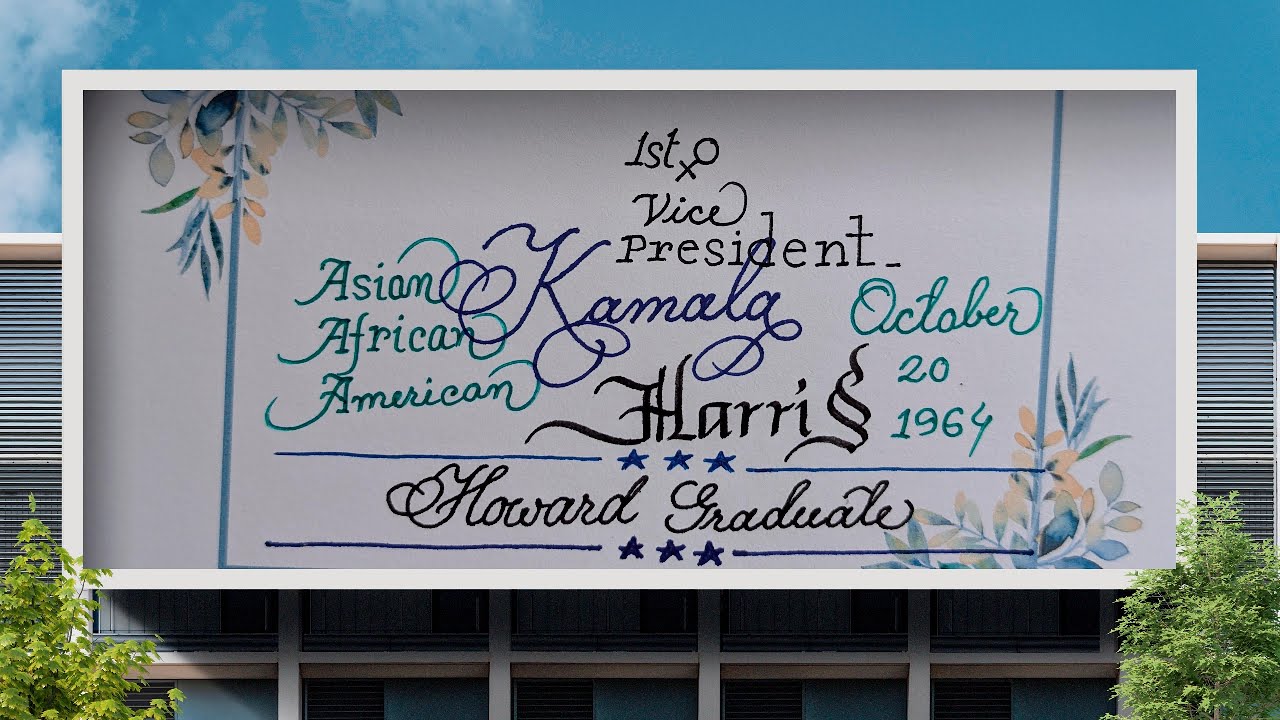 1st ♀
Vice
President
Kamala
Harris
Asian
African
American
October
20
1964
Howard Graduate